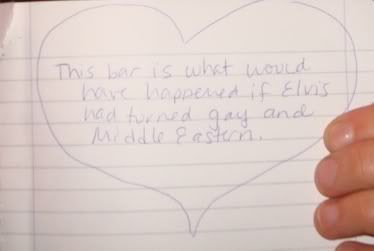 This bar is what would
have happened if Elvis
had turned gay and
Middle Eastern.